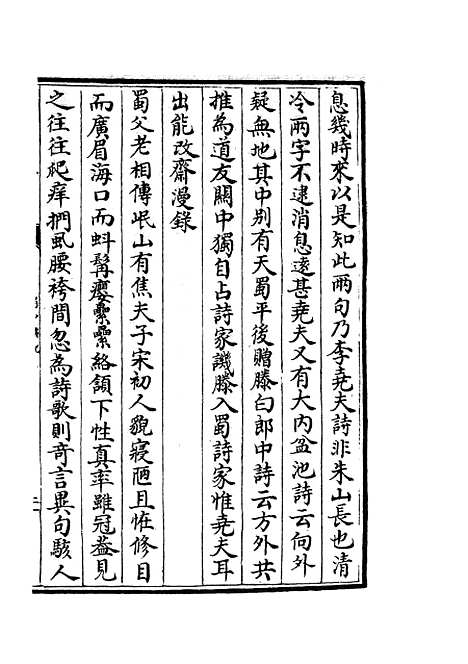 息幾時來以是知此兩句乃李堯夫詩非朱山長也清
冷兩字不逮消息逺甚堯夫又有大内盆池詩云向外
疑無地其中别有天蜀平後贈滕白郎中詩云方外共
推為道友闗中獨自占詩家譏滕入蜀詩家惟堯夫耳
出能改齋漫錄
蜀父老相傳岷山有焦夫子宋初人貌寢陋且恠修目
而廣眉海口而蚪髯癭纍纍絡頷下性真率雖冠葢見
之往往爬痒捫虱腰袴間忽為詩歌則竒言異句駭人